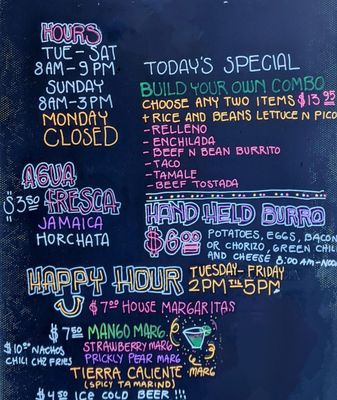 HOURS
TUE - SAT
8AM - 9 PM
SUNDAY
8AM - 3PM
MONDAY
CLOSED
TODAY'S SPECIAL
BUILD YOUR OWN COMBO
CHOOSE ANY TWO ITEMS $13.95
+ RICE AND BEANS LETTUCE N PICO
- RELLENO
- ENCHILADA
- BEEF N BEAN BURRITO
- TACO
- TAMALE
- BEEF TOSTADA
AGUA
$3.50 FRESCA
JAMAICA
HORCHATA
HAND HELD BURRO
$6.00 POTATOES, EGGS, BACON
OR CHORIZO, GREEN CHILI
AND CHEESE 8:00 AM-NOON
HAPPY HOUR TUESDAY - FRIDAY
2PM TO 5PM
$7.00 HOUSE MARGARITAS
$7.50 MANGO MARG.
STRAWBERRY MARG
PRICKLY PEAR MARG
TIERRA CALIENTE MARG
(SPICY TAMARIND)
$10.00 NACHOS
CHILI CHZ FRIES
$4.50 ICE COLD BEER !!!